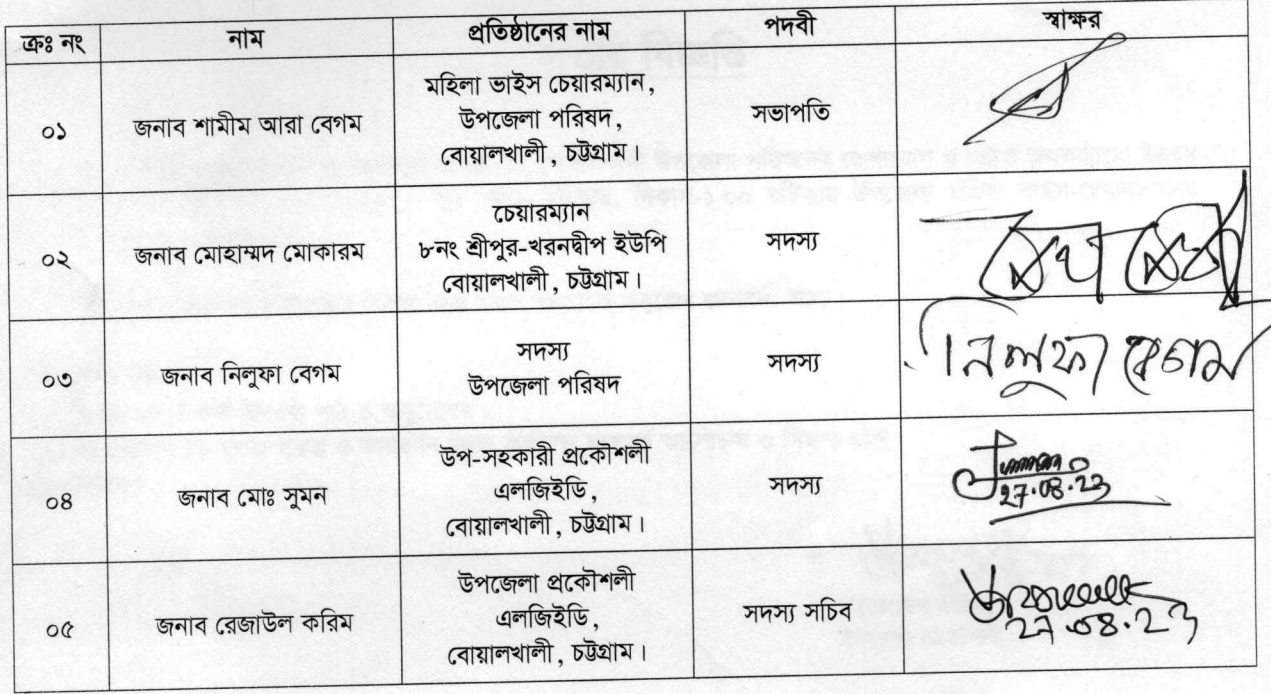 ক্রঃ নং নাম প্রতিষ্ঠানের নাম পদবী স্বাক্ষর
০১ জনাব শামীম আরা বেগম মহিলা ভাইস চেয়ারম্যান,
উপজেলা পরিষদ,
বোয়ালখালী, চট্টগ্রাম। সভাপতি
০২ জনাব মোহাম্মদ মোকারম চেয়ারম্যান
৮নং শ্রীপুর-খরনদ্বীপ ইউপি
বোয়ালখালী, চট্টগ্রাম। সদস্য
০৩ জনাব নিলুফা বেগম সদস্য
উপজেলা পরিষদ সদস্য নিলুফা বেগম
০৪ জনাব মোঃ সুমন উপ-সহকারী প্রকৌশলী
এলজিইডি,
বোয়ালখালী, চট্টগ্রাম। সদস্য
27.08.23
০৫ জনাব রেজাউল করিম উপজেলা প্রকৌশলী
এলজিইডি,
বোয়ালখালী, চট্টগ্রাম। সদস্য সচিব
27.08.23